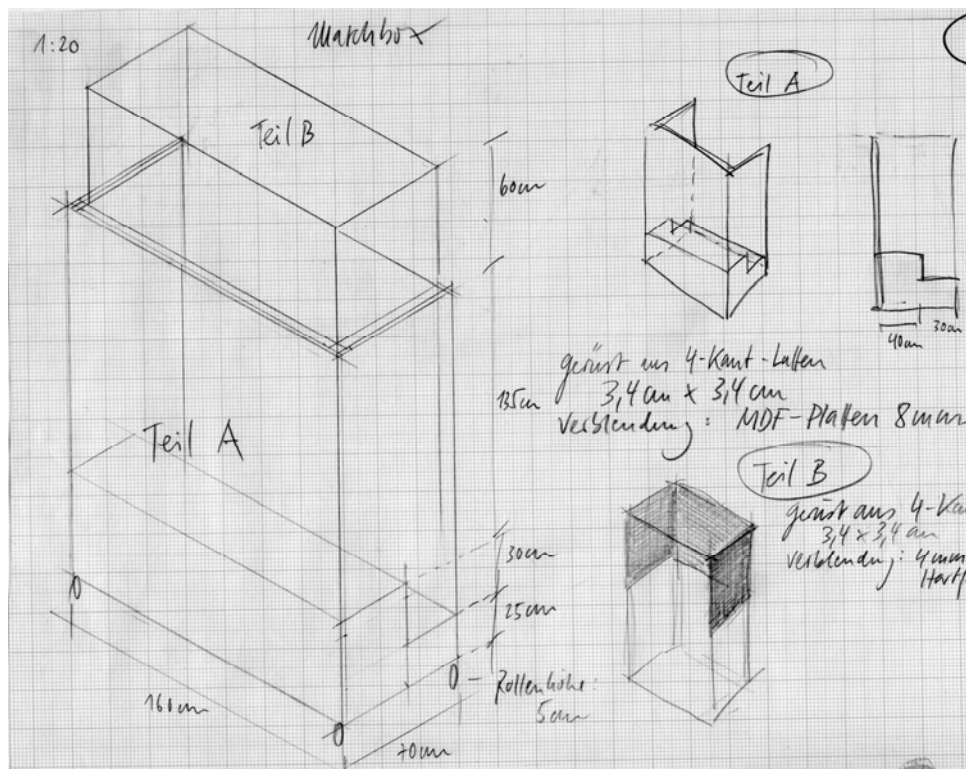 1:20
Matchbox
Teil A
Teil B
60cm
135cm
Teil A
30cm
25cm
Rollenhöhe:
5cm
160cm
70cm
40cm
30cm
gerüst aus 4-Kant-Latten
3,4cm x 3,4cm
Verblendung: MDF-Platten 8mm
Teil B
gerüst aus 4-Ka
3,4 x 3,4 cm
Verblendung: 4mm
Hartf